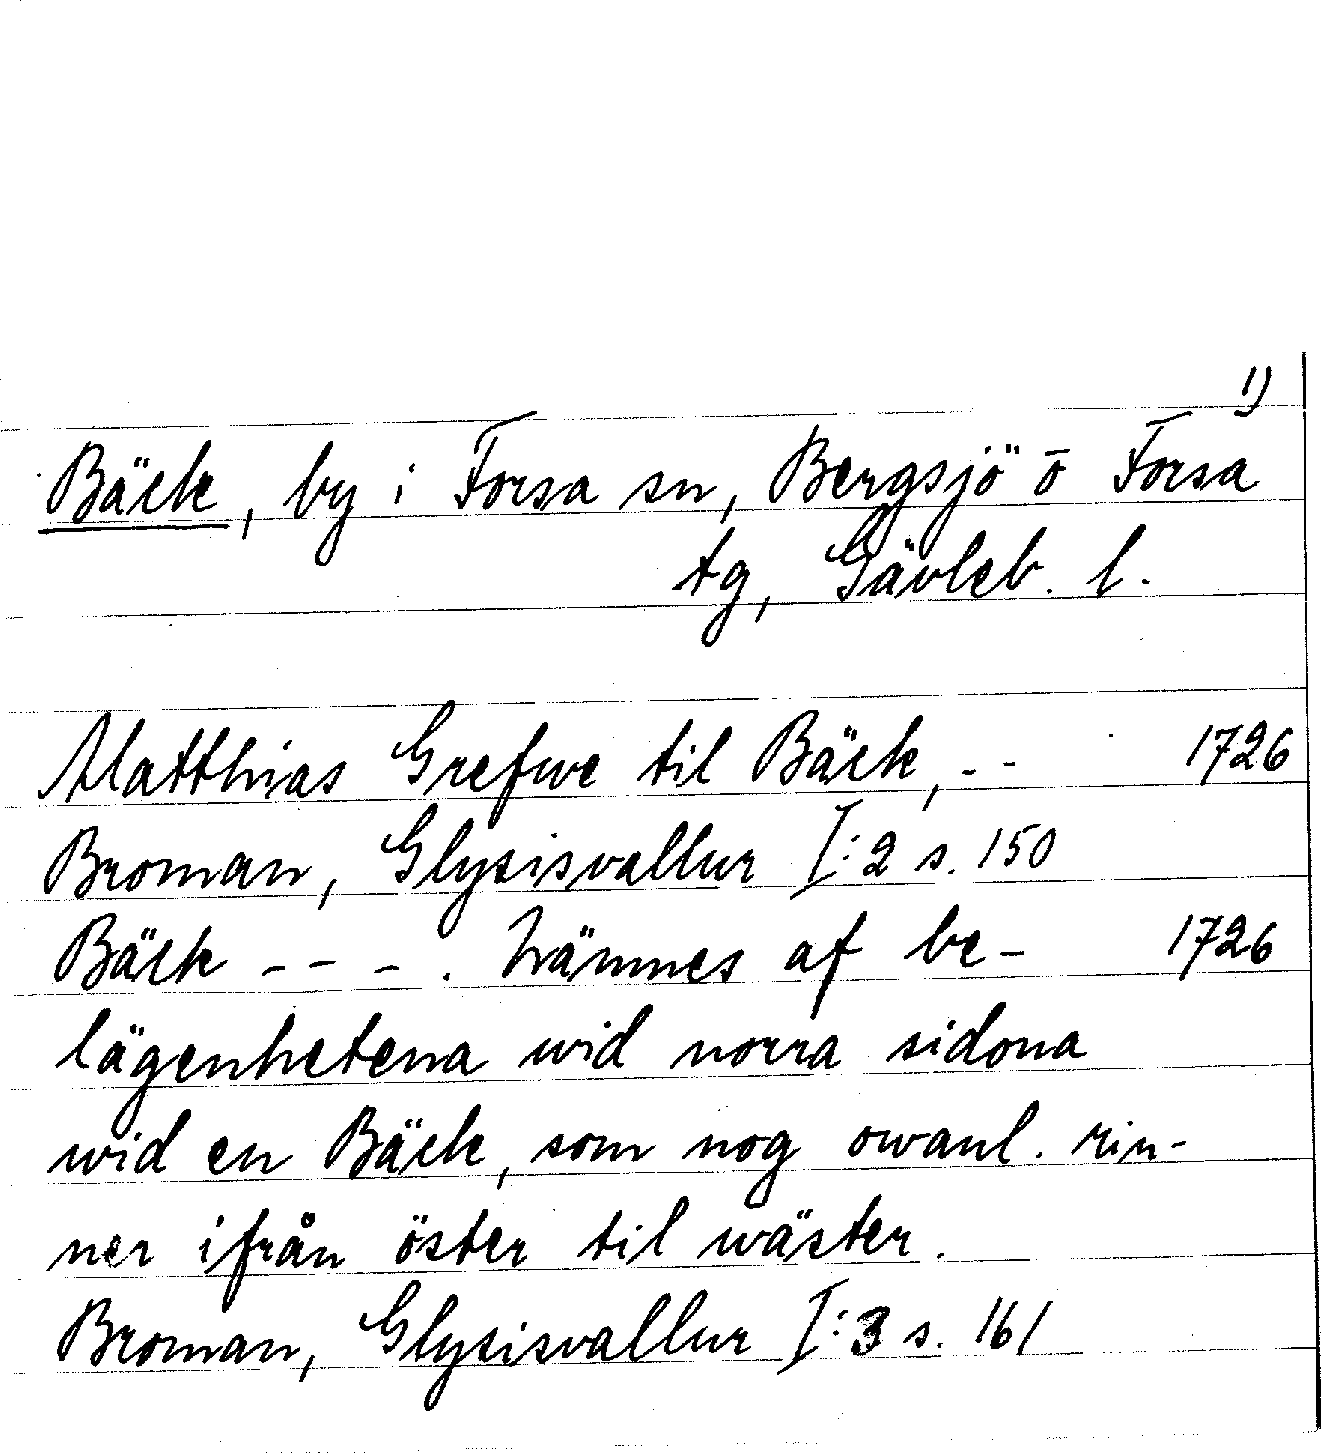 1)
Bäck, by i Forsa sn, Bergsjö o Forsa
tg, Gävleb. l.
Matthias Grefwe til Bäck, - - 1726
Broman, Glysisvallur I:2 s. 150
Bäck - - - . Nämnes af be- 1726
lägenhetena wid norra sidona
wid en Bäck, som nog owanl. rin-
ner ifrån öster til wäster.
Broman, Glysisvallur I:3 s. 161